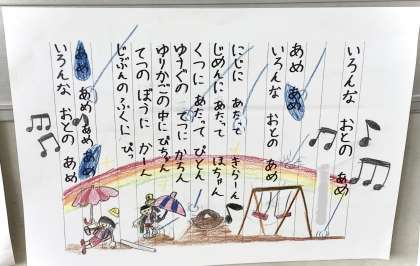 いろんな おとの あめ
あめ あめ
いろんな おとの あめ
にじに あたって きらーん
じめんに あたって ぽちゃん
くつに あたって ぴとん
ゆうぐの てつに かちん
ゆりかごの 中に ぴちん
てつの ぼうに かーん
じぶんの ふくに ぴっ
あめ あめ あめ あめ
いろんな おとの あめ